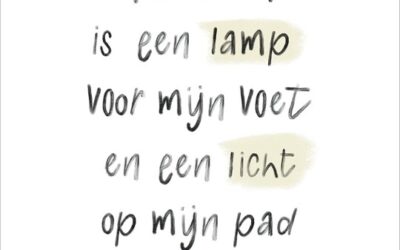 is een lamp
voor mijn voet
en een licht
op mijn pad